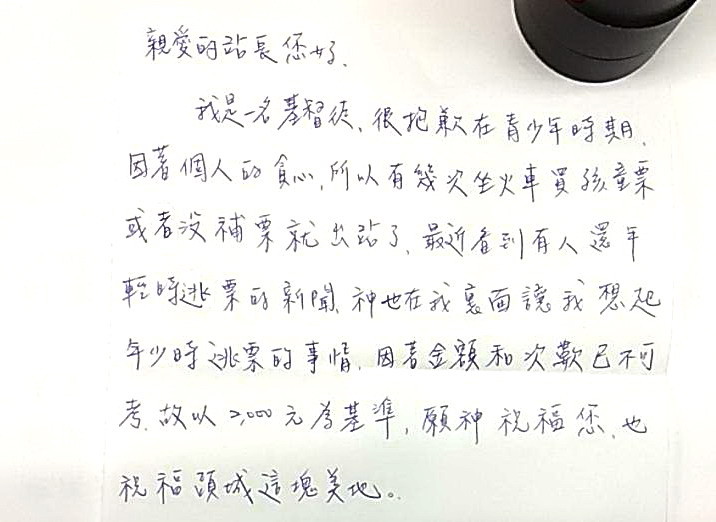 親愛的站長您好,
我是一名基督徒,很抱歉在青少年時期,
因著個人的貪心,所以有幾次坐火車買孩童票
或者没補票就出站了,最近看到有人還年
輕時逃票的新聞,神也在我裏面讓我想起
年少時逃票的事情,因著金額和次數已不可
考,故以2,000元為基準,願神祝福您,也
祝福頭城這塊美地。